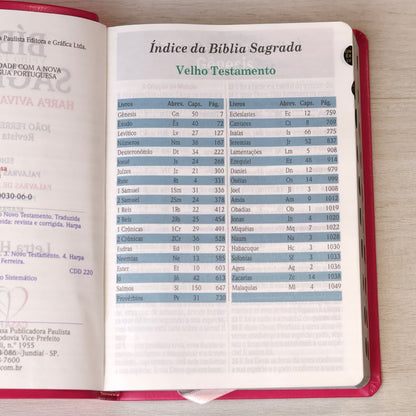 a Paulista Editora e Gráfica Ltda.
DADE COM A NOVA
GUA PORTUGUESA
HARPA AVIVA
JOÃO FERRE
Revista
0030-06-0
o Novo Testamento. Traduzida
ida: revista e corrigida. Harpa
Ferreira.
3. Novo Testamento. 4. Harpa
CDD 220
o Sistemático
Letra H
asa Publicadora Paulista
odovia Vice-Prefeito
), n.º 1955
-086 - Jundiaí - SP.
-7600
com.br
Índice da Bíblia Sagrada
Velho Testamento
Livros Abrev. Caps. Pág.
Gênesis Gn 50 7
Êxodo Ex 40 72
Levítico Lv 27 127
Números Nm 36 167
Deuteronômio Dt 34 222
Josué Js 24 268
Juízes Jz 21 300
Rute Rt 4 331
1 Samuel 1Sm 31 336
2 Samuel 2Sm 24 378
1 Reis 1Rs 22 412
2 Reis 2Rs 25 454
1 Crônicas 1Cr 29 491
2 Crônicas 2Cr 36 528
Esdras Ed 10 572
Neemias Ne 13 585
Ester Et 10 603
Jó Jó 42 613
Salmos Sl 150 647
Provérbios Pv 31 730
Livros Abrev. Caps. Pág.
Eclesiastes Ec 12 759
Cantares Ct 8 769
Isaías Is 66 775
Jeremias Jr 52 837
Lamentações Lm 5 908
Ezequiel Ez 48 914
Daniel Dn 12 979
Oséias Os 14 999
Joel Jl 3 1008
Amós Am 9 1012
Obadias Ob 1 1019
Jonas Jn 4 1020
Miquéias Mq 7 1022
Naum Na 3 1028
Habacuque Hc 3 1030
Sofonias Sf 3 1033
Ageu Ag 2 1036
Zacarias Zc 14 1038
Malaquias Ml 4 1049